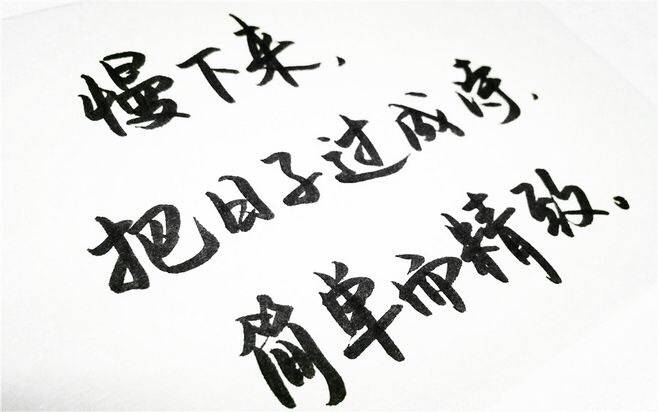 慢下来.
把日子过成诗.
简单而精致.